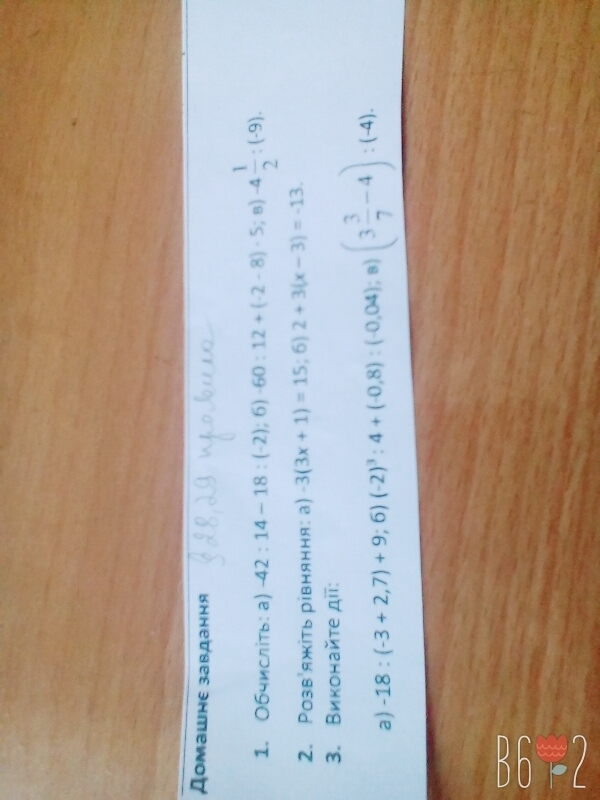 Домашнє завдання § 28, 29 правила
1. Обчисліть: а) -42 : 14 – 18 : (-2); б) -60 : 12 + (-2 - 8) · 5; в) -4 1/2 : (-9).
2. Розв'яжіть рівняння: а) -3(3x + 1) = 15; б) 2 + 3(x – 3) = -13.
3. Виконайте дії:
а) -18 : (-3 + 2,7) + 9; б) (-2)³ : 4 + (-0,8) : (-0,04); в) (3 3/7 – 4) : (-4).
В6 2